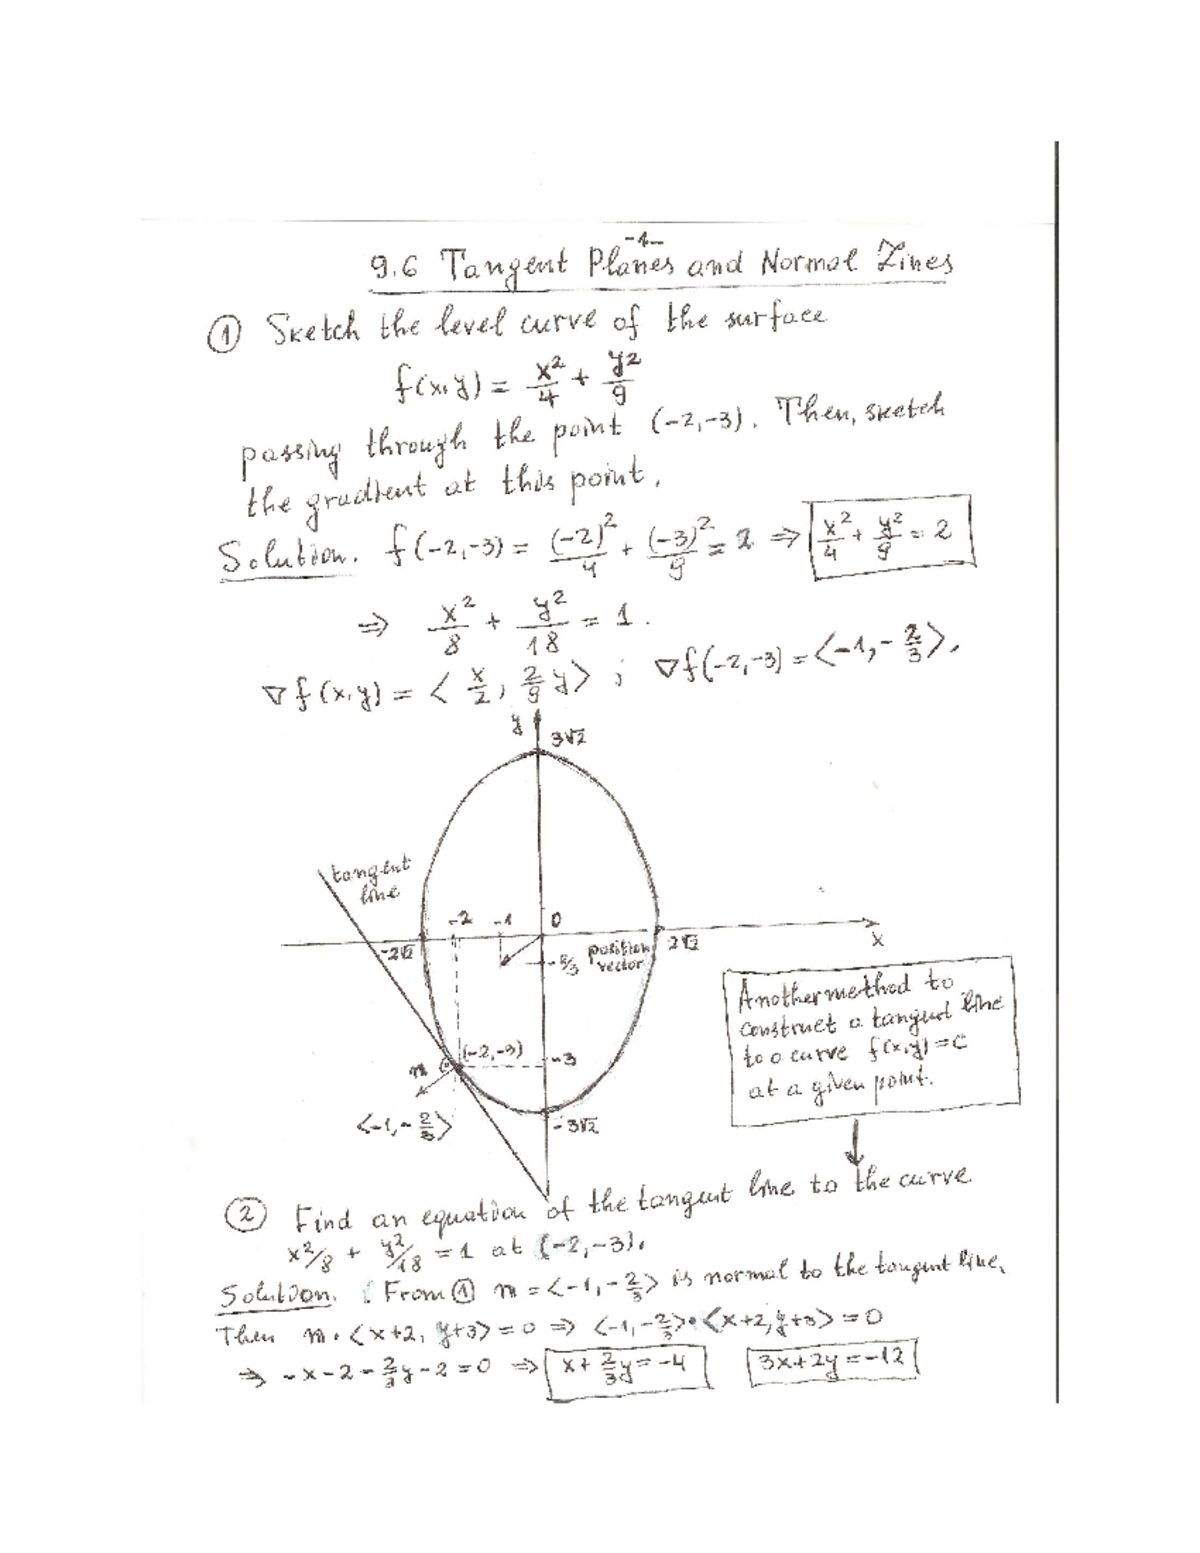 -1-
9.6 Tangent Planes and Normal Lines
① Sketch the level curve of the surface
f(x,y) = x²/4 + y²/9
passing through the point (-2,-3). Then, sketch
the gradient at this point.
Solution. f(-2,-3) = (-2)²/4 + (-3)²/9 = 2 ⇒ x²/4 + y²/9 = 2
⇒ x²/8 + y²/18 = 1.
∇f(x,y) = < x/2, 2/9 y> ; ∇f(-2,-3) = <-1, -2/3>.
y
3√2
tangent
line
-2 -1 0
-2√2 2√2 x
position
vector
(-2,-3) -3
n
<-1, -2/3>
-3√2
Another method to
construct a tangent line
to a curve f(x,y) = C
at a given point.
② Find an equation of the tangent line to the curve
x²/8 + y²/18 = 1 at (-2,-3).
Solution. From ① n = <-1, -2/3> is normal to the tangent line.
Then n • <x+2, y+3> = 0 ⇒ <-1, -2/3> • <x+2, y+3> = 0
⇒ -x-2-2/3y-2 = 0 ⇒ x + 2/3y = -4 3x+2y = -12